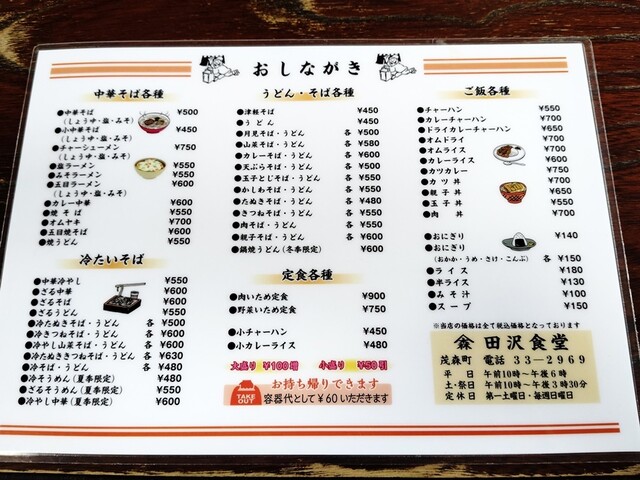 おしながき
中華そば各種
●中華そば ¥500
(しょうゆ・塩・みそ)
●小中華そば ¥450
(しょうゆ・塩・みそ)
●チャーシューメン ¥750
(しょうゆ・塩・みそ)
●塩ラーメン ¥550
●みそラーメン ¥550
●五目ラーメン ¥600
(しょうゆ・塩・みそ)
●カレー中華 ¥600
●焼そば ¥550
●オムヤキ ¥700
●五目焼そば ¥600
●焼うどん ¥550
冷たいそば
●中華冷やし ¥550
●ざる中華 ¥600
●ざるそば ¥600
●ざるうどん ¥550
●冷たぬきそば・うどん 各 ¥500
●冷きつねそば・うどん 各 ¥600
●冷やし山菜そば・うどん 各 ¥600
●冷たぬききつねそば・うどん 各 ¥630
●冷そば・うどん 各 ¥480
●冷そうめん(夏季限定) ¥480
●ざるそうめん(夏季限定) ¥550
●冷やし中華(夏季限定) ¥600
うどん・そば各種
●津軽そば ¥450
●うどん ¥450
●月見そば・うどん 各 ¥500
●山菜そば・うどん 各 ¥580
●カレーそば・うどん 各 ¥600
●天ぷらそば・うどん 各 ¥550
●玉子とじそば・うどん 各 ¥550
●かしわそば・うどん 各 ¥550
●たぬきそば・うどん 各 ¥480
●きつねそば・うどん 各 ¥550
●肉そば・うどん 各 ¥550
●親子そば・うどん 各 ¥600
●鍋焼うどん(冬季限定) ¥600
定食各種
●肉いため定食 ¥900
●野菜いため定食 ¥750
●小チャーハン ¥450
●小カレーライス ¥480
大盛り ¥100増 小盛り ¥50引
TAKE OUT
お持ち帰りできます
容器代として¥60いただきます
ご飯各種
●チャーハン ¥550
●カレーチャーハン ¥700
●ドライカレーチャーハン ¥650
●オムドライ ¥700
●オムライス ¥700
●カレーライス ¥600
●カツカレー ¥750
●カツ丼 ¥700
●親子丼 ¥650
●玉子丼 ¥550
●肉丼 ¥700
●おにぎり ¥140
●おにぎり
(おかか・うめ・さけ・こんぶ) 各 ¥150
●ライス ¥180
●半ライス ¥130
●みそ汁 ¥100
●スープ ¥150
※当店の価格は全て税込価格となっております
田沢食堂
茂森町 電話 33-2969
平日 午前10時〜午後6時
土・祭日 午前10時〜午後3時30分
定休日 第一土曜日・毎週日曜日